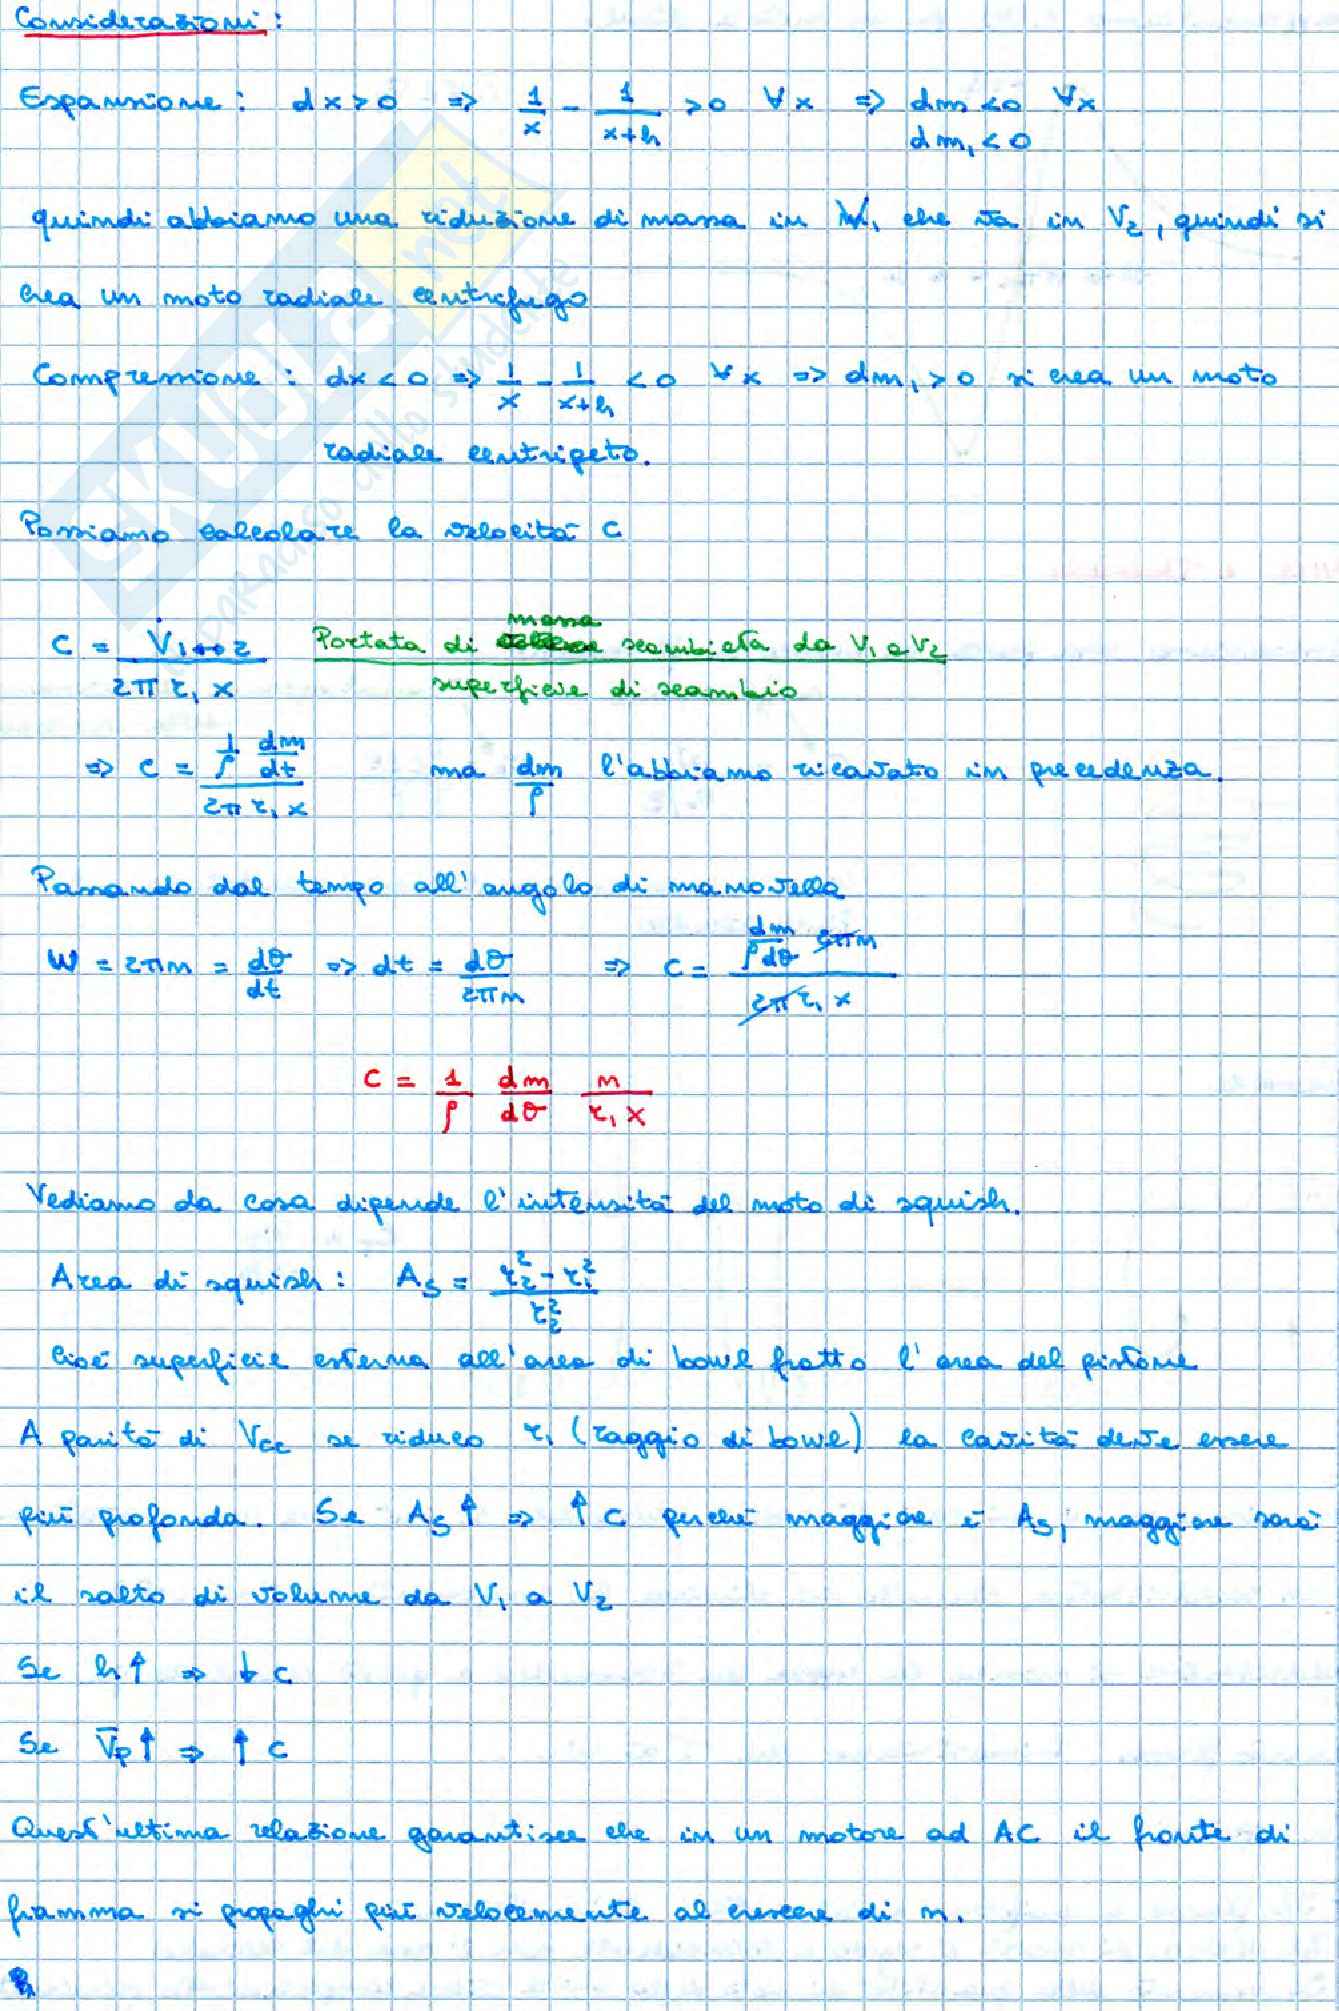 Considerazioni:
Espansione: dx>0 ⇒ 1/x - 1/(x+h) >0 ∀x ⇒ dm<0 ∀x
dm₁<0
quindi abbiamo una riduzione di massa in V₁ che va in V₂, quindi si
crea un moto radiale centrifugo
Compressione: dx<0 ⇒ 1/x - 1/(x+h) <0 ∀x ⇒ dm₁>0 si crea un moto
radiale centripeto.
Possiamo calcolare la velocità c
c = V̇₁↔₂ / (2π r₁ x) Portata di massa scambiata da V₁ a V₂ / superficie di scambio
⇒ c = (1/ρ dm/dt) / (2π r₁ x) ma dm/ρ l'abbiamo ricavato in precedenza.
Passando dal tempo all'angolo di manovella
W = 2πn = dθ/dt ⇒ dt = dθ/2πn ⇒ c = (dm/(ρdθ) 2πn) / (2π r₁ x)
c = 1/ρ dm/dθ n/(r₁ x)
Vediamo da cosa dipende l'intensità del moto di squish.
Area di squish: A_S = (r₂² - r₁²)/r₂²
Cioè superficie esterna all'area di bowl fratto l'area del pistone
A parità di Vcc se riduco r₁ (raggio di bowl) la cavità deve essere
più profonda. Se A_S↑ ⇒ ↑c perché maggiore è A_S, maggiore sarà
il salto di volume da V₁ a V₂
Se h↑ ⇒ ↓c
Se V̄p↑ ⇒ ↑c
Quest'ultima relazione garantisce che in un motore ad AC il fronte di
fiamma si propaghi più velocemente al crescere di n.